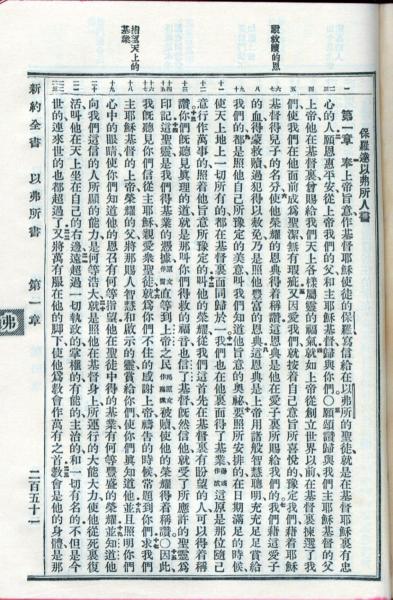 保羅達以弗所人書
說救贖的恩
第一章 奉上帝旨意作基督耶穌使徒的保羅寫信給在以弗所的聖徒就是在基督耶穌裏有忠
心的人願恩惠平安從上帝我們的父和主耶穌基督歸與你們〇願頌讚歸與我們主耶穌基督的父
上帝他在基督裏曾賜給我們天上各樣屬靈的福氣就如上帝從創立世界以前在基督裏揀選了我
們使我們在他面前成為聖潔無有瑕疵又因愛我們就按着自己意旨所喜悅的豫定我們藉着耶穌
基督得兒子的名分使他榮耀的恩典得着稱讚這恩典是他在愛子裏所賜給我們的我們藉這愛子
的血得蒙救贖過犯得以赦免乃是照他豐富的恩典這恩典是上帝用諸般智慧聰明充充足足賞給
我們的都是照他自己所豫定的美意叫我們知道他旨意的奧秘要照所安排的在日期滿足的時候
使天上地上一切所有的都在基督裏面同歸於一我們也在他裏面得了基業這原是那位隨己
意行作萬事的照着他旨意所豫定的叫他的榮耀從我們這首先在基督裏有盼望的人可以得着稱
讚你們既聽見真理的道就是那叫你們得救的福音也信了基督既然信他就受了所應許的聖靈為
指望天上的基業
印記這聖靈是我們得基業的憑據直等到上帝之民被贖使他的榮耀得着稱讚〇因此
我既聽見你們信從主耶穌親愛眾聖徒就為你們不住的感謝上帝禱告的時候常題到你們求我們
主耶穌基督的上帝榮耀的父將那賜人智慧啟示的靈賞給你們使你們真知道他並且照明你們
心中的眼睛使你們知道他的恩召有何等指望他在聖徒中得的基業有何等豐盛的榮耀並知道他
向我們這信的人所顯的能力是何等浩大就是照他在基督身上所運行的大能大力使他從死裏復
活叫他在天上坐在自己的右邊遠超過一切執政的掌權的有能的主治的和一切有名的不但是今
世的連來世的也都超過了又將萬有服在他的腳下使他為教會作萬有之首教會是他的身體是那
新約全書 以弗所書 第一章 二百五十一
弗